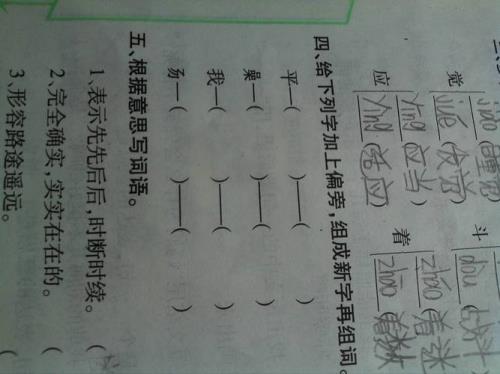 觉 jué (发觉) 斗 dòu (战斗)
yīng (应当) zháo (着迷)
应 yìng (适应) 着 zhāo
四、给下列字加上偏旁，组成新字再组词。
平—( )——( )
喿—( )——( )
我—( )——( )
—( )——( )
五、根据意思写词语。
1、表示先先后后，时断时续。(
2、完全确实，实实在在的。(
3、形容路途遥远。(